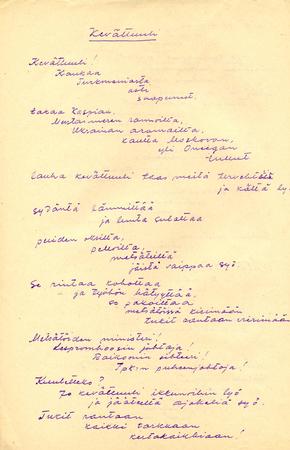 Kevättuuli
Kevättuuli!
Kaukaa
Turkmeniasta
asti
saapunut.
takaa Kaspian,
Mustanmeren rannoilta,
Ukrainan aromailta,
kautta Moskovan,
yli Oneegan
tullut
Lauha kevättuuli taas meitä tervehtää
ja kättä lyö.
sydäntä lämmittää
ja lunta sulattaa
puiden oksilta,
pelloilta,
metsäteiltä
jäistä vaippaa syö.
Se rintaa kohottaa
ja työhön hätyyttää.
se pakoittaa
metsätöissä kiirimään
tukit rantaan vierimään
Metsätöiden ministeri!
Lespromhoosin johtaja!
Raikomin sihteeri!
Tpk:n puheenjohtaja!
Kuuletteko?
Jo kevättuuli ikkunoihin lyö
ja jääteillä ajokeliä syö.
Tukit rantaan
kaikki tarkkaan
kertakaikkiaan!